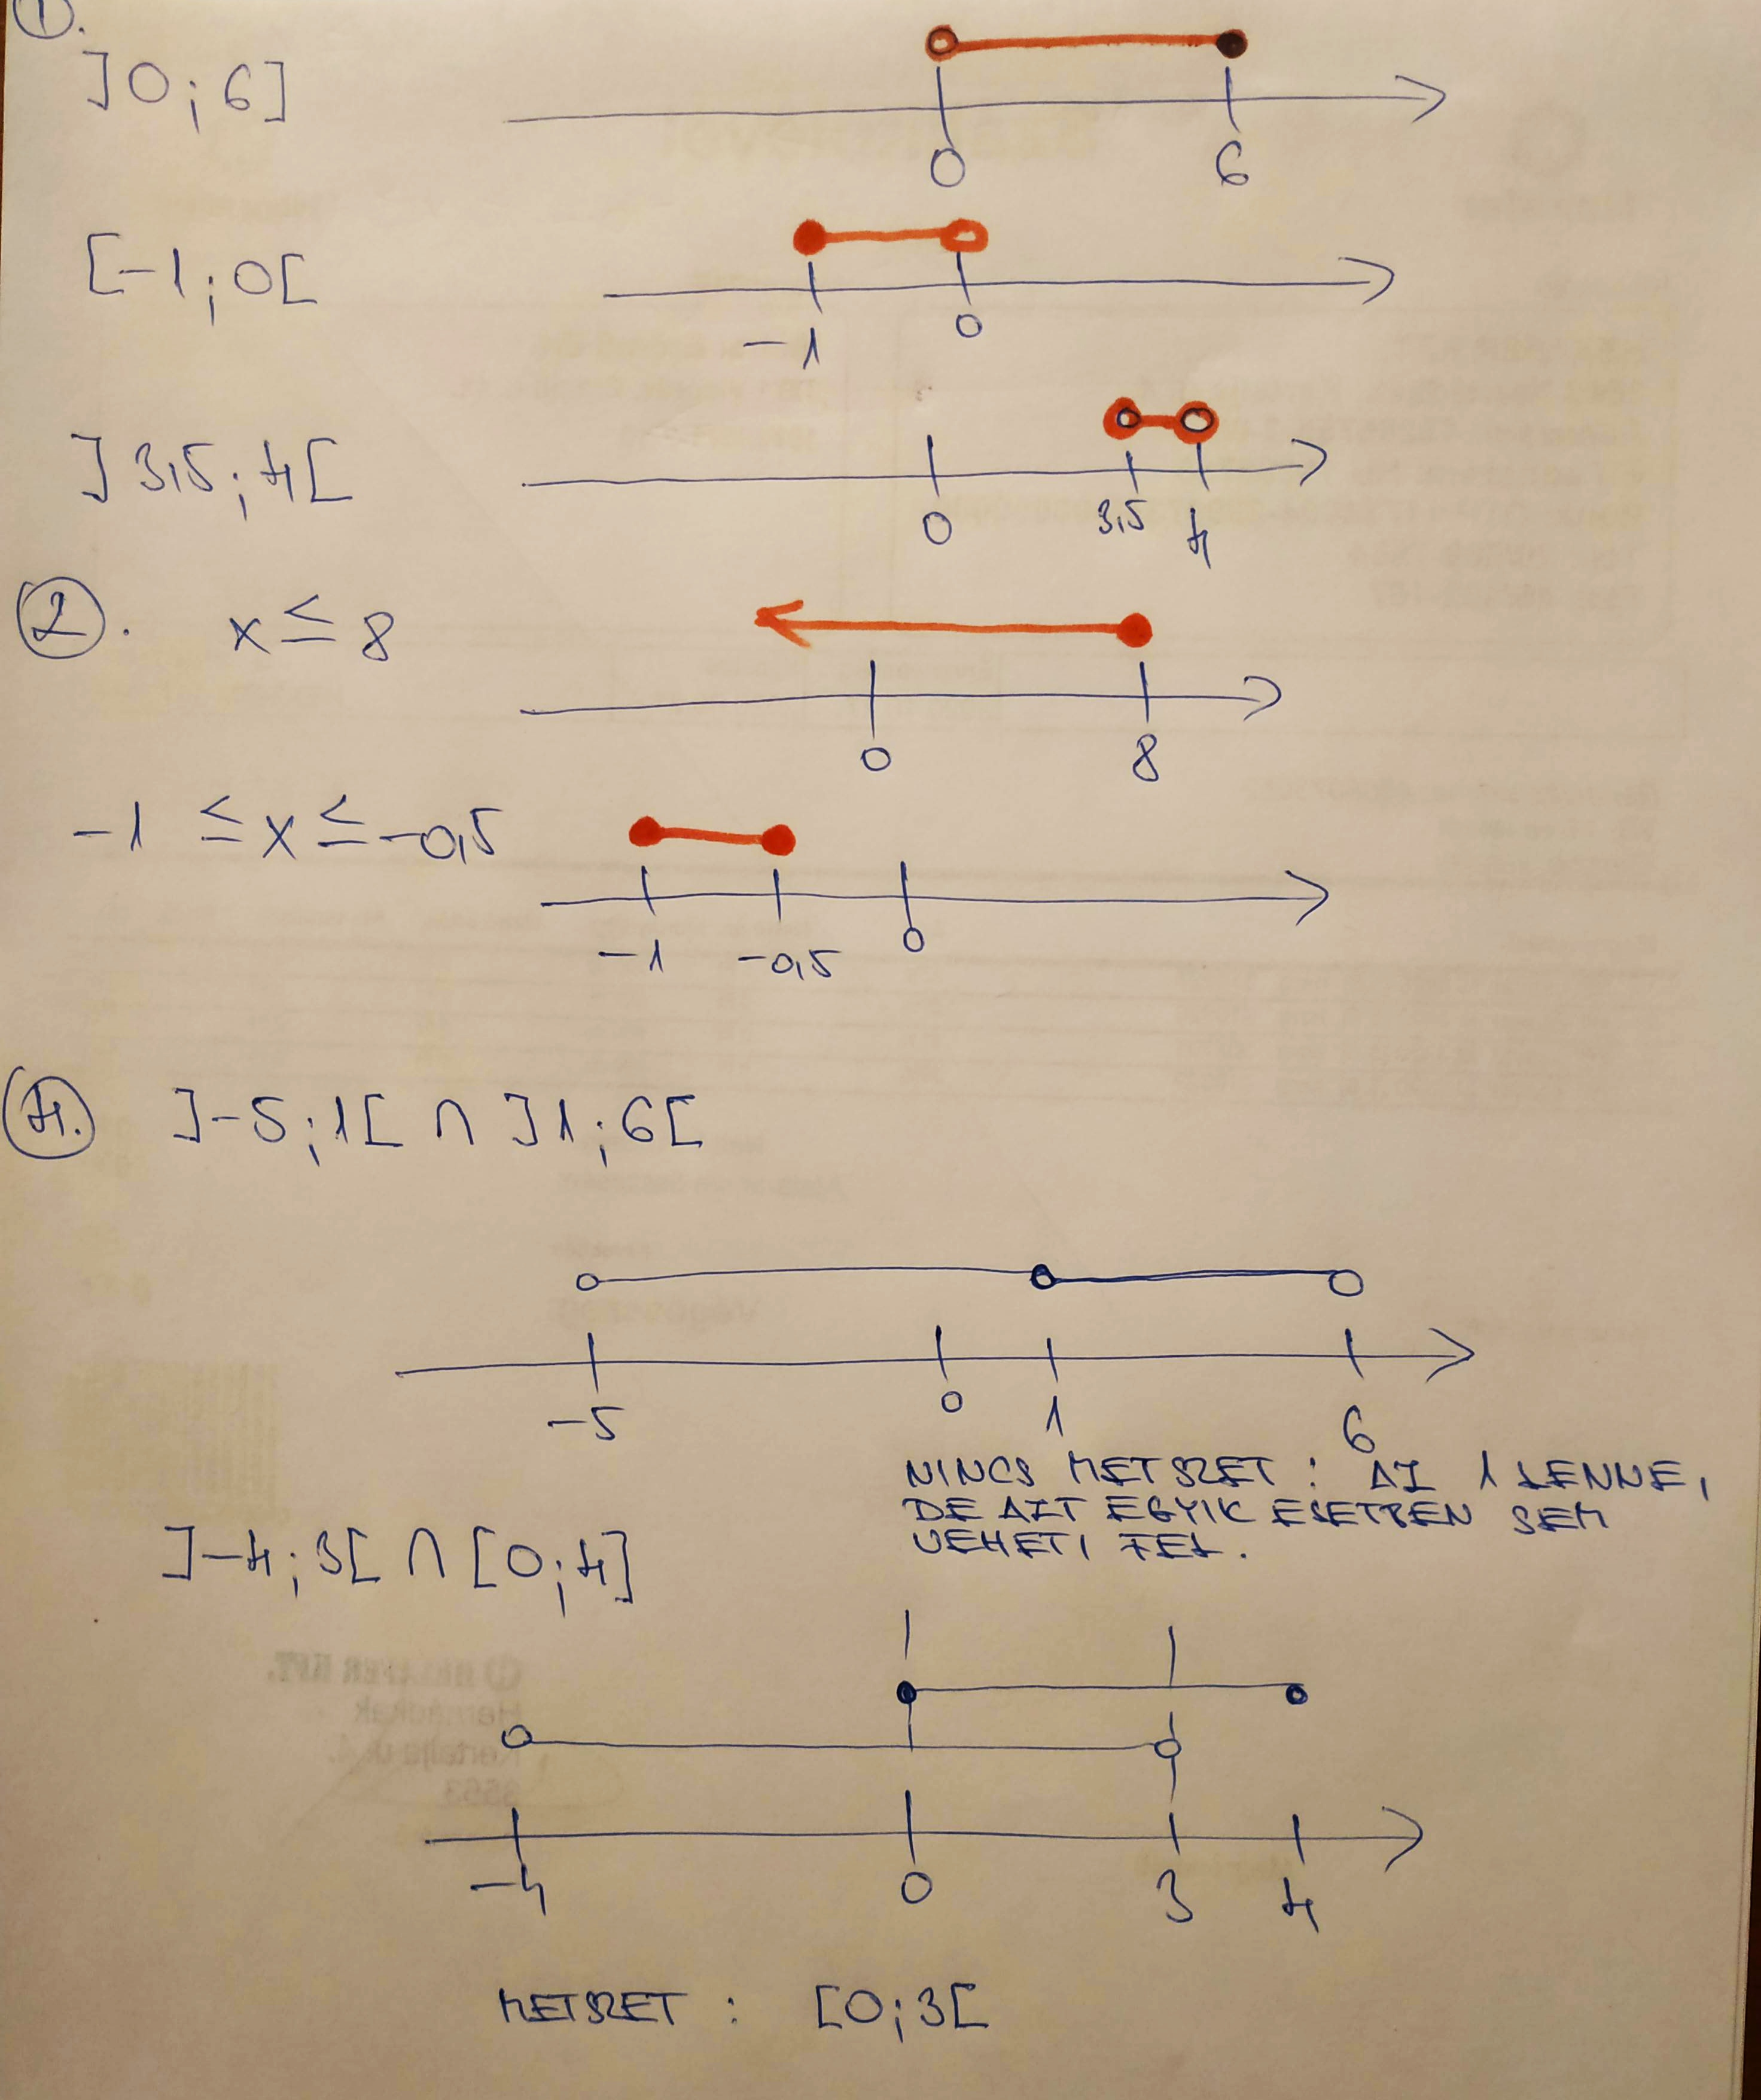 1.
]0;6]
0 6
[-1;0[
-1 0
]3,5;4[
0 3,5 4
2. x ≤ 8
0 8
-1 ≤ x ≤ -0,5
-1 -0,5 0
4. ]-5;1[ ∩ ]1;6[
-5 0 1 6
NINCS METSZET : AZ 1 LENNE,
DE AZT EGYIK ESETBEN SEM
VEHETI FEL.
]-4;3[ ∩ [0;4]
-4 0 3 4
METSZET : [0;3[